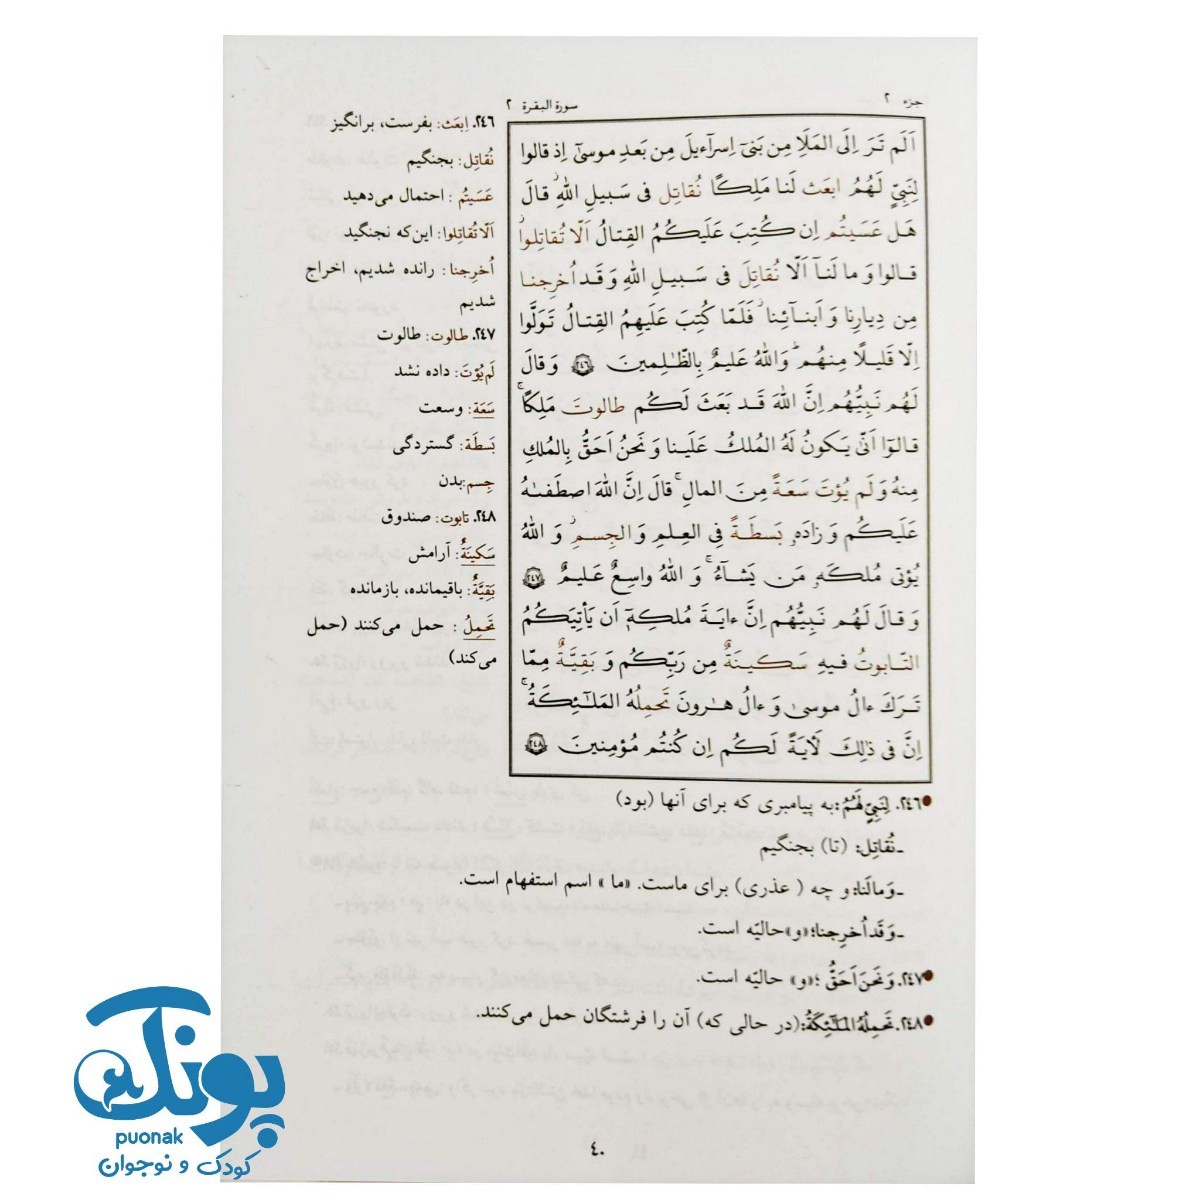 جزء ۲
سورة البقرة ۲
اَلَم تَرَ اِلَی المَلَاِ مِن بَنیٓ اِسرآءیلَ مِن بَعدِ موسیٰٓ اِذ قالوا
لِنَبِیٍّ لَهُمُ ابعَث لَنا مَلِکًا نُقاتِل فی سَبیلِ اللّٰهِ ۖ قالَ
هَل عَسَیتُم اِن کُتِبَ عَلَیکُمُ القِتالُ اَلّا تُقاتِلوا ۖ
قالوا وَ ما لَنآ اَلّا نُقاتِلَ فی سَبیلِ اللّٰهِ وَ قَد اُخرِجنا
مِن دِیارِنا وَ اَبنآئِنا ۖ فَلَمّا کُتِبَ عَلَیهِمُ القِتالُ تَوَلَّوا
اِلّا قَلیلًا مِنهُم ۗ وَ اللّٰهُ عَلیمٌ بِالظّٰلِمینَ ﴿۲۴۶﴾ وَ قالَ
لَهُم نَبِیُّهُم اِنَّ اللّٰهَ قَد بَعَثَ لَکُم طالوتَ مَلِکًا ۚ
قالوٓا اَنّیٰ یَکونُ لَهُ المُلکُ عَلَینا وَ نَحنُ اَحَقُّ بِالمُلکِ
مِنهُ وَ لَم یُؤتَ سَعَةً مِنَ المالِ ۚ قالَ اِنَّ اللّٰهَ اصطَفىٰهُ
عَلَیکُم وَ زادَهٗ بَسطَةً فِی العِلمِ وَ الجِسمِ ۖ وَ اللّٰهُ
یُؤتی مُلکَهٗ مَن یَشآءُ ۚ وَ اللّٰهُ واسِعٌ عَلیمٌ ﴿۲۴۷﴾
وَ قالَ لَهُم نَبِیُّهُم اِنَّ ءایَةَ مُلکِهٖٓ اَن یَأتِیَکُمُ
التّابوتُ فیهِ سَکینَةٌ مِن رَبِّکُم وَ بَقِیَّةٌ مِمّا
تَرَکَ ءالُ موسیٰ وَ ءالُ هٰرونَ تَحمِلُهُ المَلٰٓئِکَةُ ۚ
اِنَّ فی ذٰلِکَ لَأٓیَةً لَکُم اِن کُنتُم مُؤمِنینَ ﴿۲۴۸﴾
۲۴۶. اِبعَث: بفرست، برانگیز
نُقاتِل: بجنگیم
عَسَیتُم : احتمال می‌دهید
اَلّا تُقاتِلوا: این‌که نجنگید
اُخرِجنا: رانده شدیم، اخراج
شدیم
۲۴۷. طالوت: طالوت
لَم یُؤتَ: داده نشد
سَعَة: وسعت
بَسطَة: گستردگی
جِسم:بدن
۲۴۸. تابوت: صندوق
سَکینَةُ: آرامش
بَقِیَّةٌ: باقیمانده، بازمانده
تَحمِلُ : حمل می‌کنند (حمل
می‌کند)
۲۴۶. لِنَبِیٍّ لَهُمُ:به پیامبری که برای آنها (بود)
ـ نُقاتِل: (تا) بجنگیم
ـ وَ مالَنا: و چه ( عذری) برای ماست. «ما » اسم استفهام است.
ـ وَ قَد اُخرِجنا؛«و»حالیّه است.
۲۴۷. وَ نَحنُ اَحَقُّ ؛«و» حالیّه است.
۲۴۸. تَحمِلُهُ المَلٰٓئِکَةُ:(در حالی که) آن را فرشتگان حمل می‌کنند.
۴۰
پونک
puonak
کودک و نوجوان